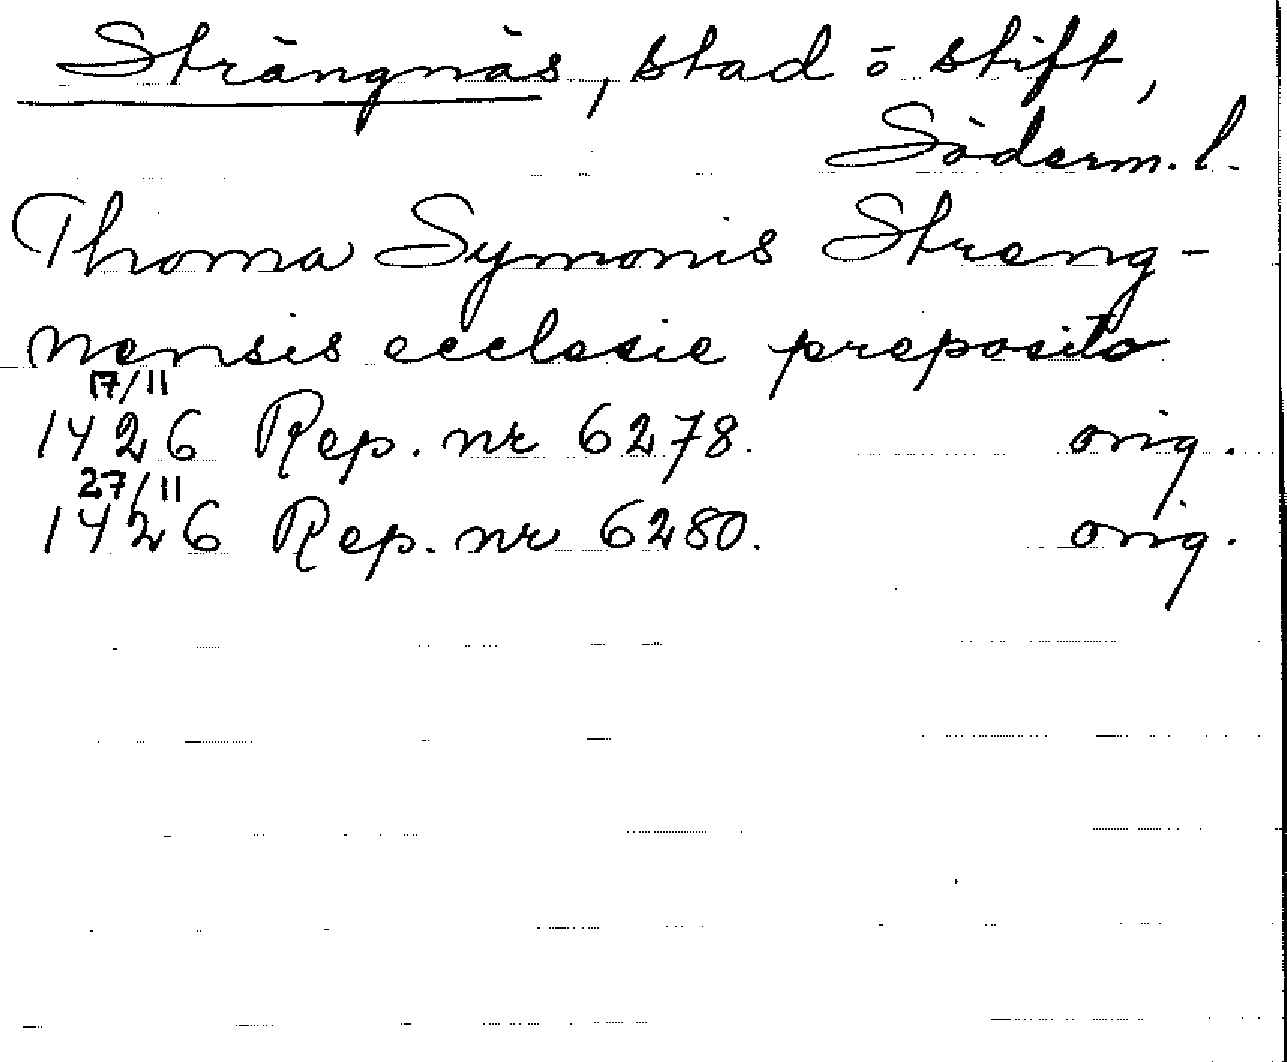 Strängnäs, stad ō stift,
Söderm. l.
Thoma Symonis Streng-
nensis ecclesie preposito
17/11
1426 Rep. nr 6278. orig.
27/11
1426 Rep. nr 6280. orig.